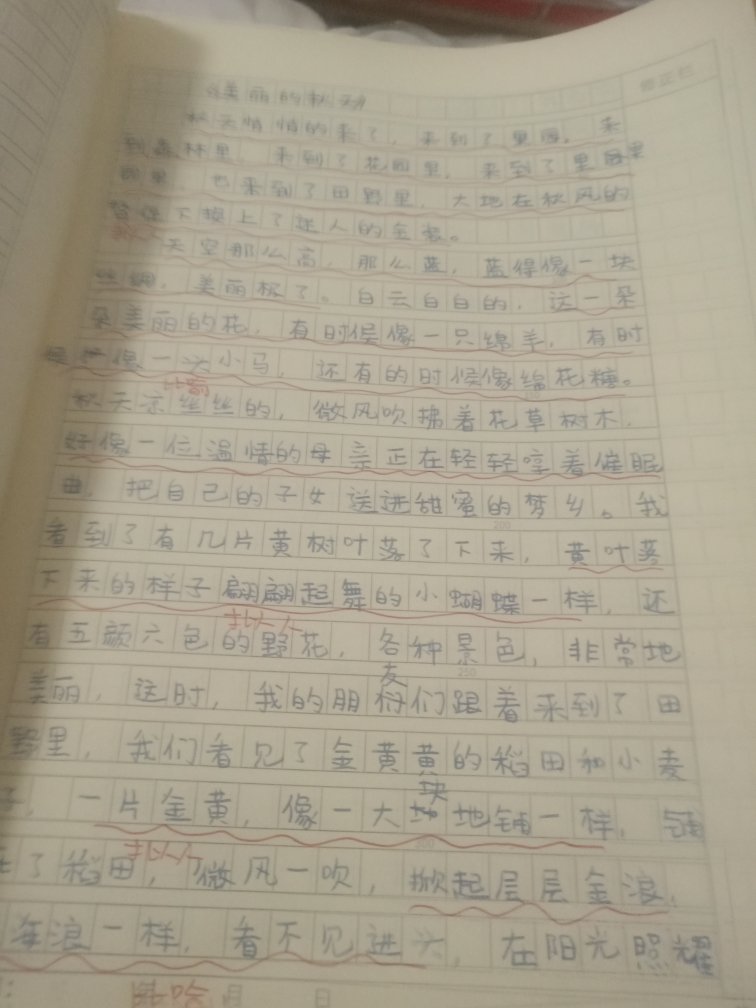 《美丽的秋天》
修正栏
秋天悄悄的来了，来到了果园，来
到森林里，来到了花园里，来到了果园里
也来到了田野里，大地在秋风的
下换上了迷人的金装。
天空那么高，那么蓝，蓝得像一块
丝绸，美丽极了。白云白白的，这一朵
朵美丽的花，有时候像一只绵羊，有时
候像一头小马，还有的时候像绵花糖。
比喻
秋天凉丝丝的，微风吹拂着花草树木，
好像一位温情的母亲正在轻轻哼着催眠
曲，把自己的子女送进甜蜜的梦乡。我
200
看到了有几片黄树叶落了下来，黄叶落
下来的样子翩翩起舞的小蝴蝶一样，还
拟人
有五颜六色的野花，各种景色，非常地
友
美丽，这时，我的朋们跟着来到了田
野里，我们看见了金黄黄的稻田和小麦
块
子，一片金黄，像一大地铺一样，铺
拟人
在了稻田，微风一吹，掀起层层金浪，
海浪一样，看不见进头，在阳光照耀
比喻
月 日